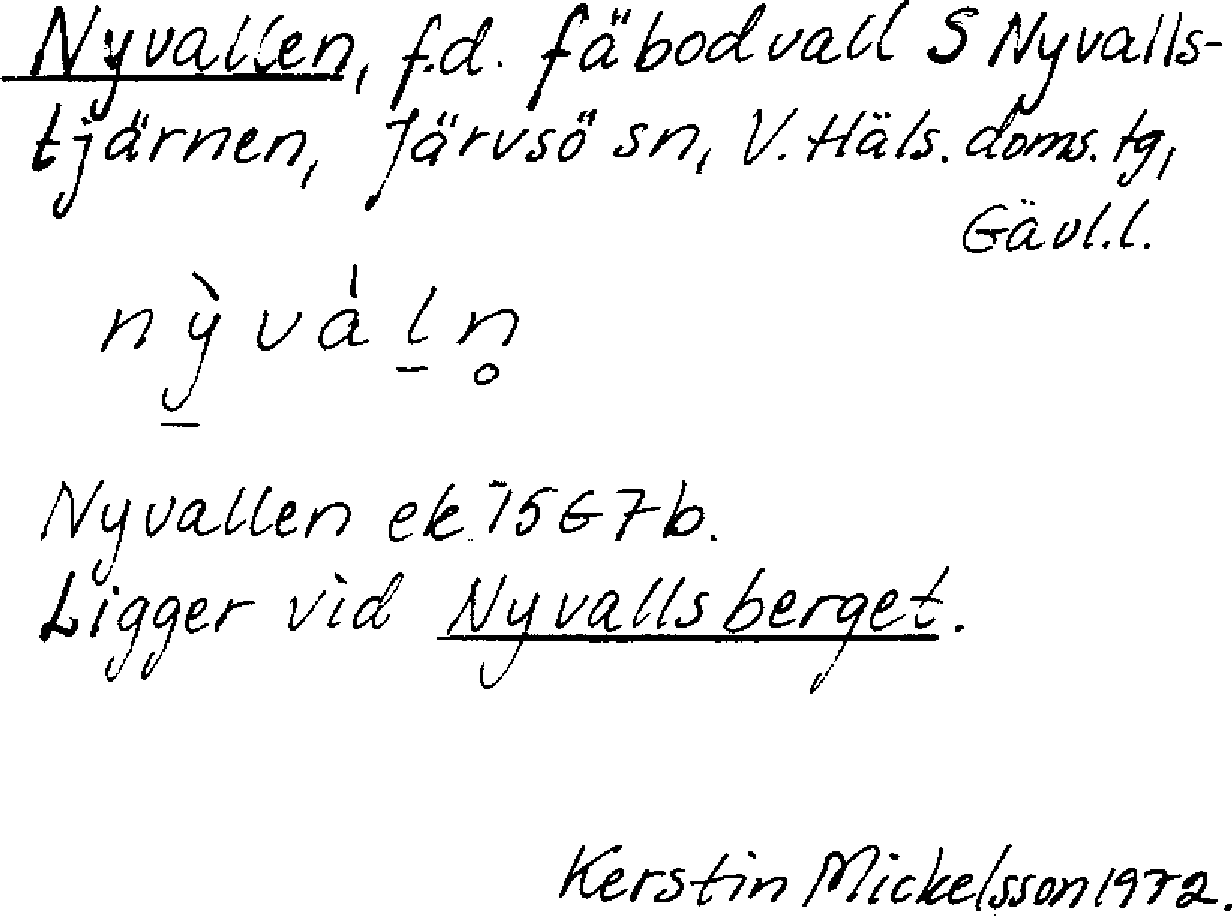 Nyvallen, f.d. fäbodvall S Nyvalls-
tjärnen, Järvsö sn, V. Häls. doms. tg,
Gävl.l.
nỳ̱váḻn̥
Nyvallen ek 15G7b.
Ligger vid Nyvallsberget.
Kerstin Mickelsson 1972.